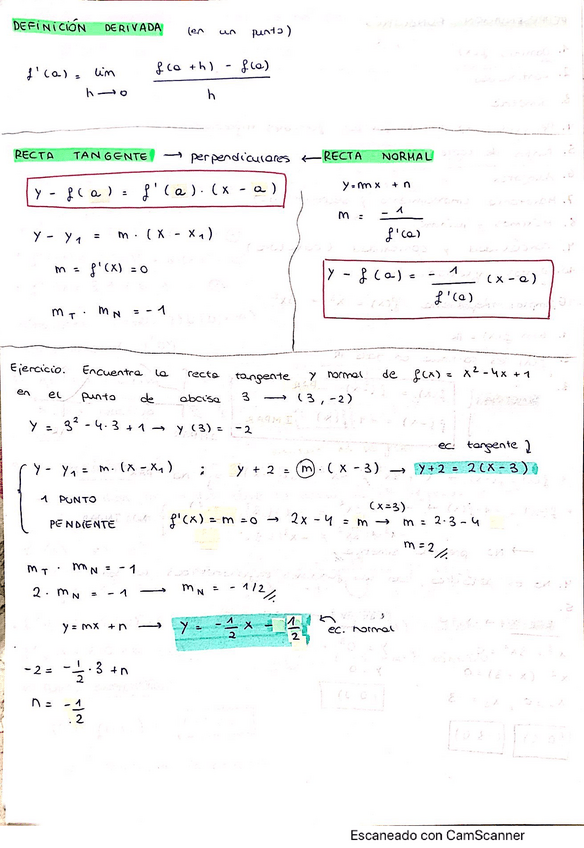 DEFINICIÓN DERIVADA (en un punto)
f'(a) = lim h→0 f(a+h) - f(a) / h
RECTA TANGENTE → perpendiculares ← RECTA NORMAL
y - f(a) = f'(a) · (x - a)
y - y1 = m · (x - x1)
m = f'(x) = 0
mT · mN = -1
y = mx + n
m = -1 / f'(a)
y - f(a) = - 1 / f'(a) (x-a)
Ejercicio. Encuentra la recta tangente y normal de f(x) = x² - 4x + 1
en el punto de abcisa 3 → (3, -2)
y = 3² - 4·3 + 1 → y(3) = -2
ec. tangente
y - y1 = m · (x - x1) ; y + 2 = m · (x - 3) → y+2 = 2(x-3)
1 PUNTO
(x=3)
PENDIENTE f'(x) = m = 0 → 2x - 4 = m → m = 2·3 - 4
m = 2
mT · mN = -1
2 · mN = -1 → mN = -1/2
y = mx + n → y = - 1/2 x - 1/2 ← ec. normal
-2 = - 1/2 · 3 + n
n = - 1/2
Escaneado con CamScanner